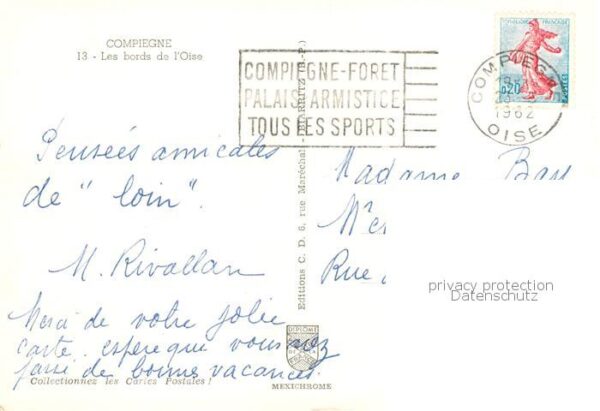 COMPIEGNE
13 - Les bords de l'Oise
COMPIEGNE-FORET
PALAIS ARMISTICE
TOUS LES SPORTS
REPUBLIQUE FRANCAISE
0,20
POSTES
COMPIEGNE
1962
OISE
Pensées amicales
de "loin".
M. Rivallan
Merci de votre jolie
carte. espère que vous avez
passé de bonnes vacances.
Madame
Rue
Editions C. D. 6, rue Maréchal BIARRITZ (B.-P.)
privacy protection
Datenschutz
DIPLOME
Collectionnez les Cartes Postales !
MEXICHROME